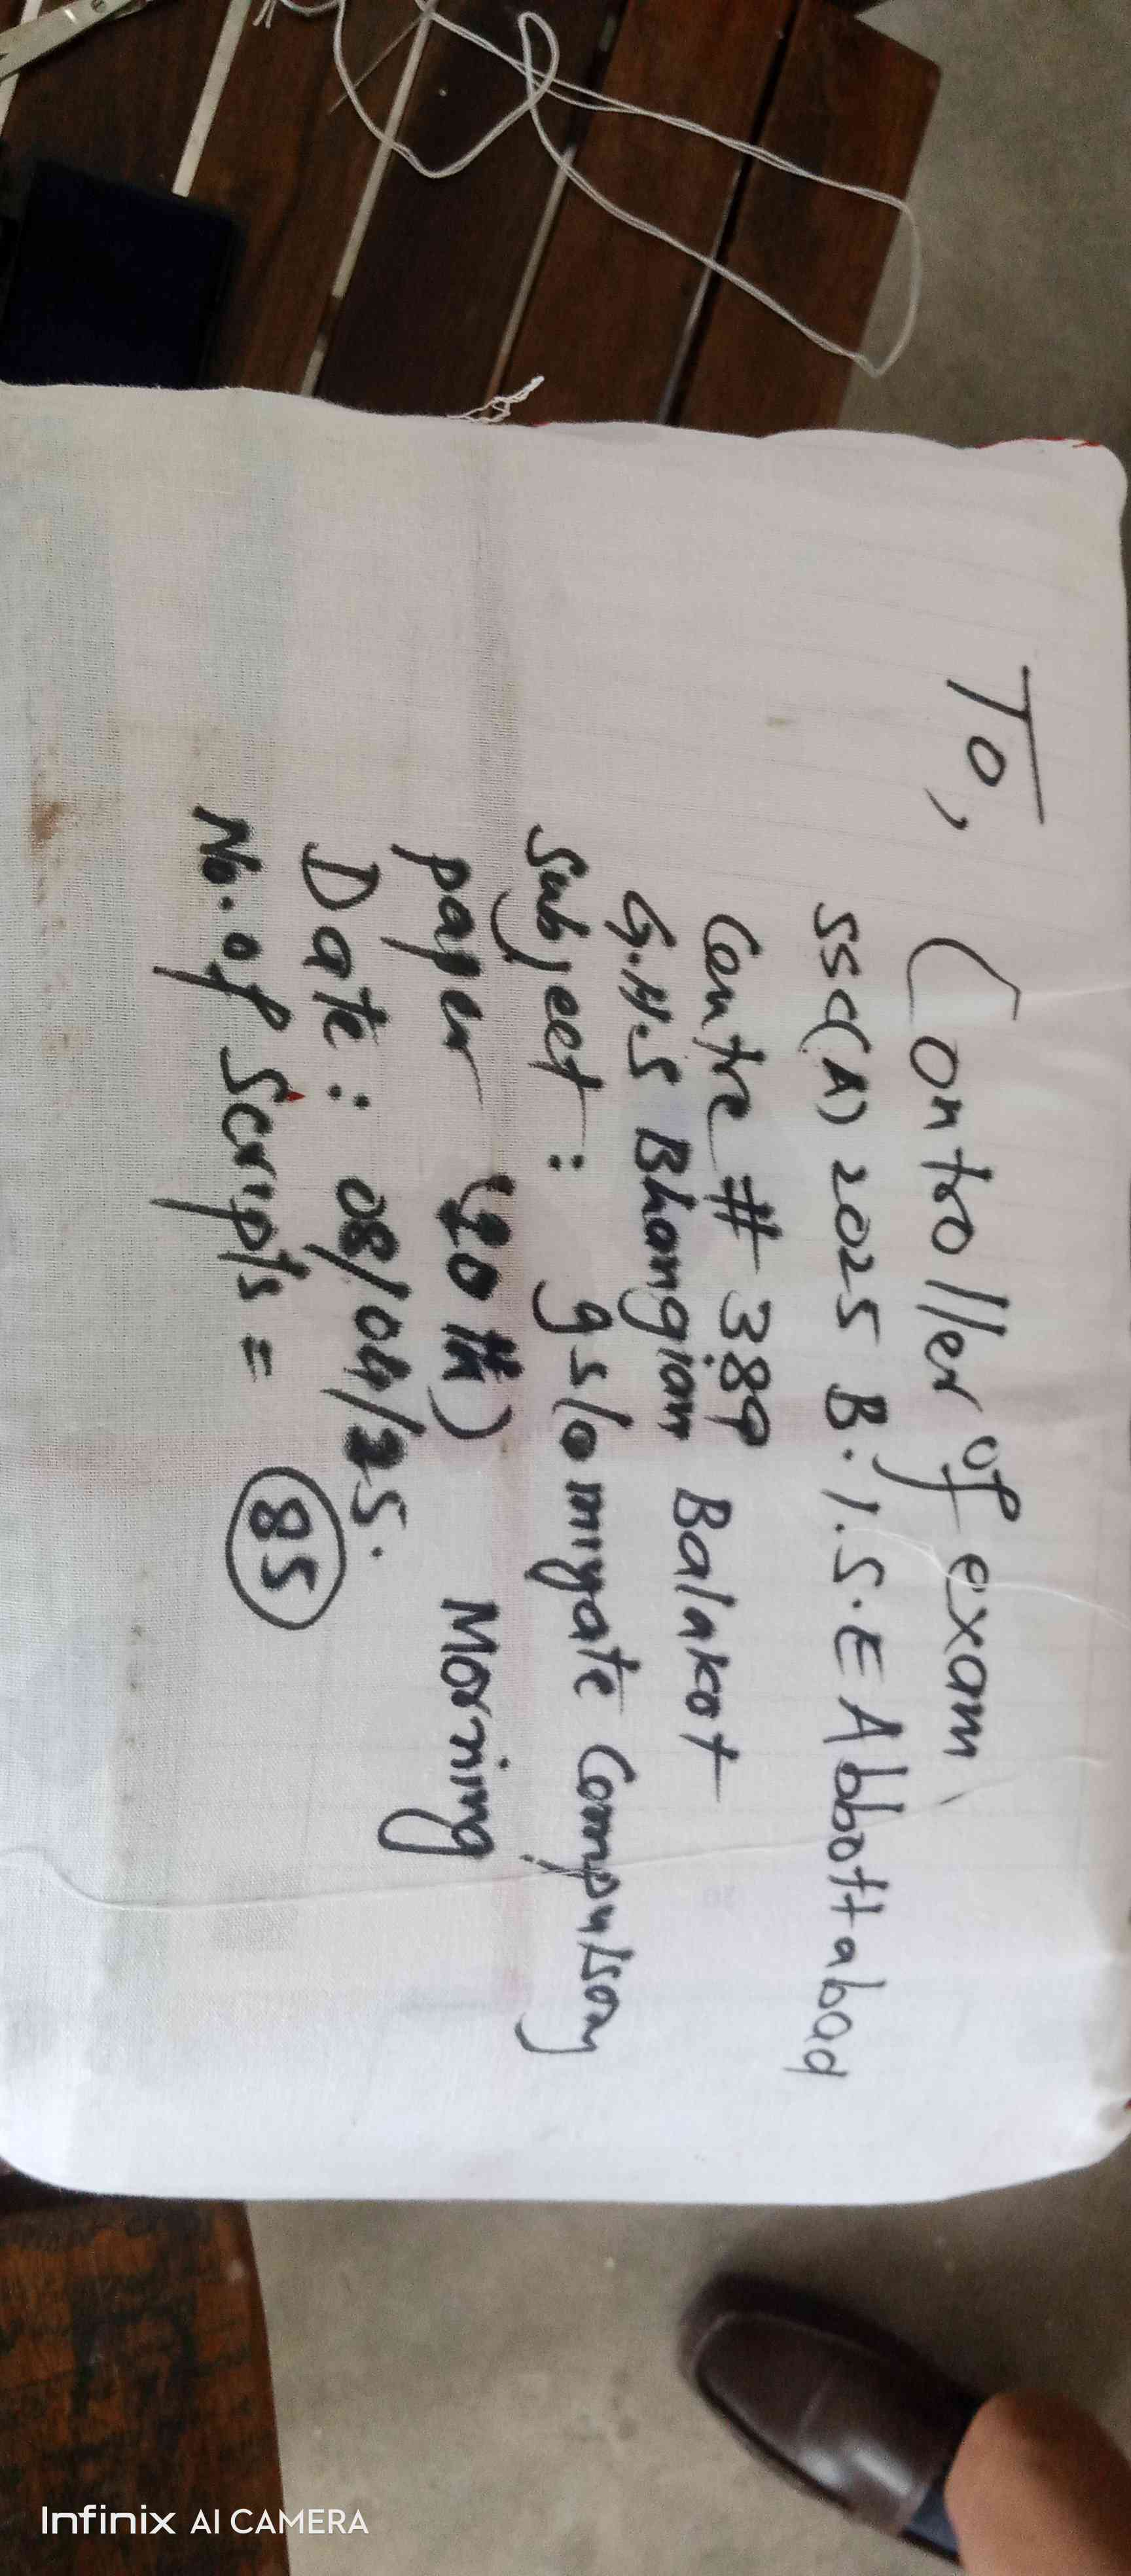 To,
Controller of exam
SSC(A) 2025 B.I.S.E Abbottabad
Centre # 389
G.H.S Bhangian Balakot
Subject: gslomiyate Compulsory
paper (10th) Morning
Date: 08/04/25.
No. of Scripts = 85
Infinix AI CAMERA